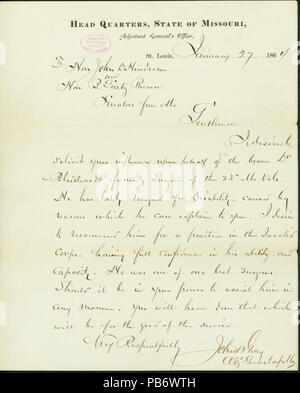 HEAD QUARTERS, STATE OF MISSOURI,
Adjutant General's Office,
St. Louis, January 27 1864
To Hon John B Henderson
and
Hon B Gratz Brown
Senators from Mo
Gentlemen
I desire to
solicit your influence upon behalf of the bearer Dr
formerly Surgeon of the 23d Mo Vols
He has lately resigned for disability, caused by
reasons which he can explain to you. I desire
to recommend him for a position in the Invalid
Corps, having full confidence in his ability and
Capacity. He was one of our best Surgeons
Should it be in your power to assist him in
any manner, you will have done that which
will be for the good of the service
Very Respectfully
John B Gray
Adjt General of Mo
alamy
Image ID: PB6WTH
www.alamy.com